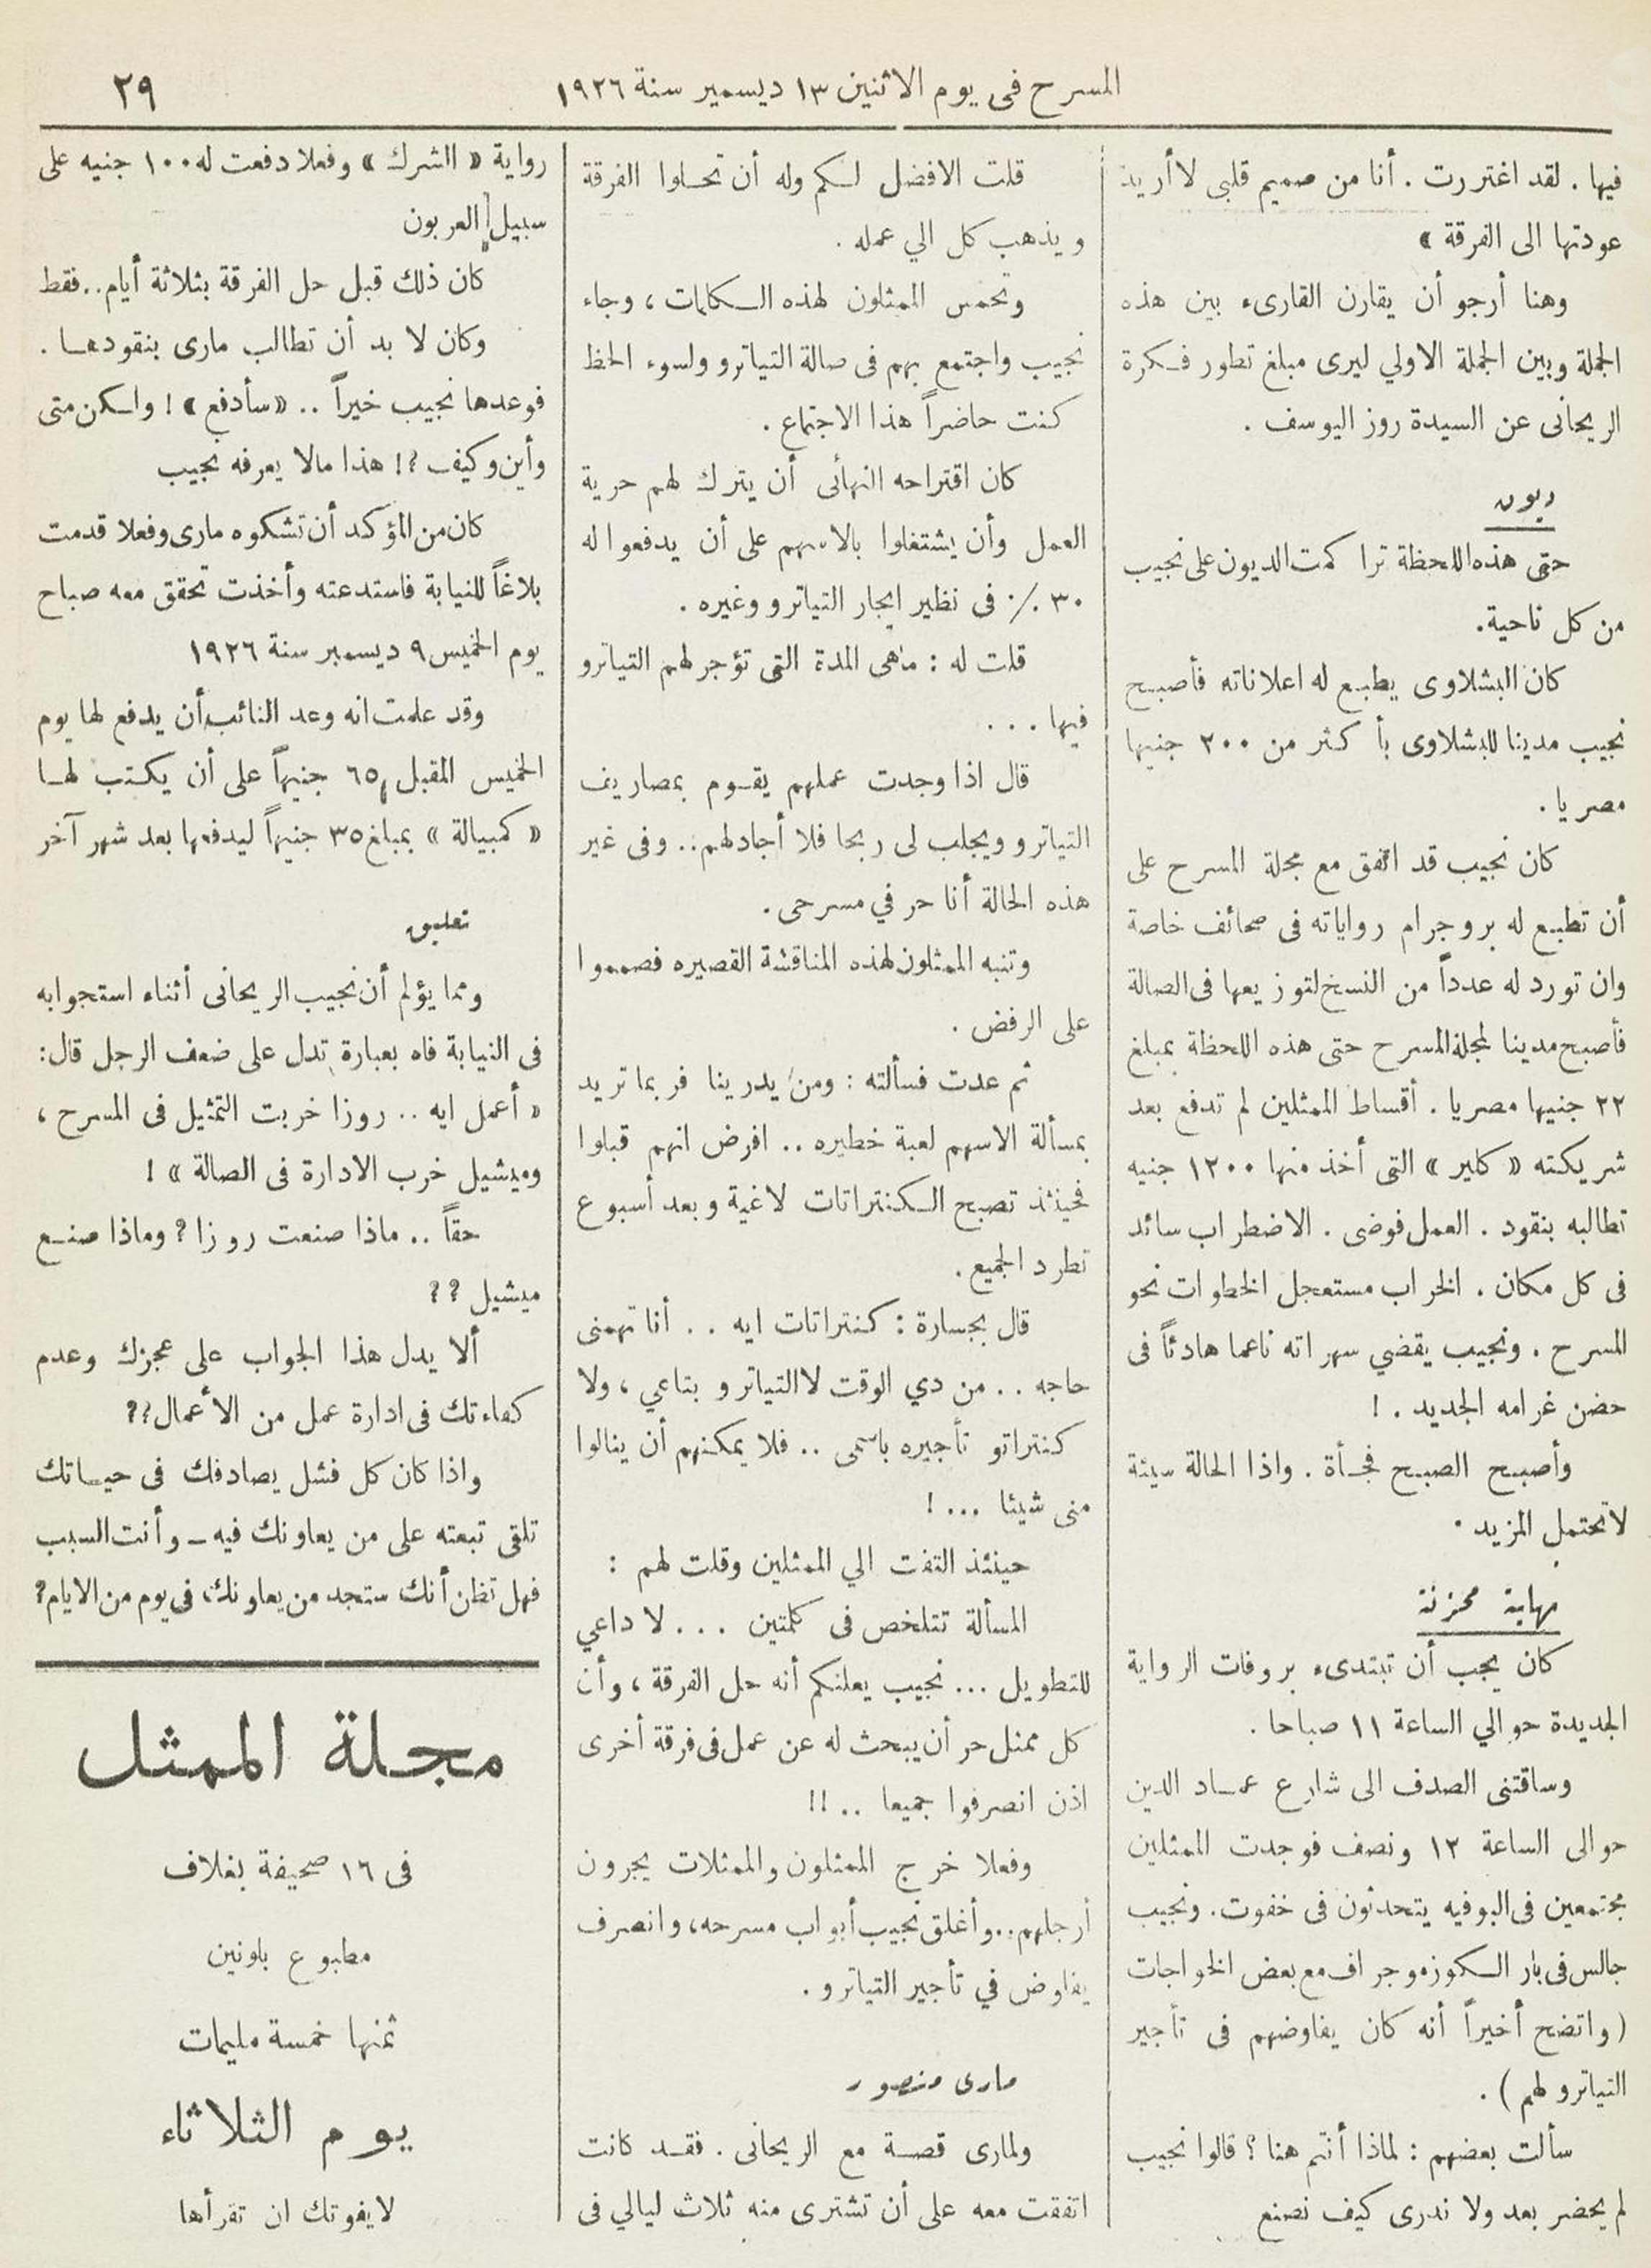 المسرح فى يوم الاثنين ١٣ ديسمبر سنة ١٩٢٦
٢٩
فيها . لقد اغتررت . أنا من صميم قلبى لا أريد
عودتها الى الفرقة »
وهنا أرجو أن يقارن القارىء بين هذه
الجملة وبين الجملة الاولي ليرى مبلغ تطور فكرة
الريحانى عن السيدة روز اليوسف .
ديون
حتى هذه اللحظة تراكمت الديون على نجيب
من كل ناحية.
كان البشلاوى يطبع له اعلاناته فأصبح
نجيب مدينا للبشلاوى بأكثر من ٢٠٠ جنيها
مصريا .
كان نجيب قد اتفق مع مجلة المسرح على
أن تطبع له بروجرام رواياته فى صحائف خاصة
وان تورد له عدداً من النسخ لتوزيعها فى الصالة
فأصبح مدينا لمجلة المسرح حتى هذه اللحظة بمبلغ
٢٢ جنيها مصريا . أقساط الممثلين لم تدفع بعد
شريكته « كلير » التى أخذ منها ١٢٠٠ جنيه
تطالبه بنقود . العمل فوضى . الاضطراب سائد
فى كل مكان . الخراب مستعجل الخطوات نحو
المسرح . ونجيب يقضي سهراته ناعما هادئاً فى
حضن غرامه الجديد . !
وأصبح الصبح فجأة . واذا الحالة سيئة
لا تحتمل المزيد .
مهابة محزنة
كان يجب أن تبتدىء بروفات الرواية
الجديدة حوالي الساعة ١١ صباحا .
وساقتنى الصدف الى شارع عماد الدين
حوالى الساعة ١٢ ونصف فوجدت الممثلين
مجتمعين فى البوفيه يتحدثون فى خفوت . ونجيب
جالس فى بار الكوزموجراف مع بعض الخواجات
( واتضح أخيراً أنه كان يفاوضهم فى تأجير
التياترو لهم ) .
سألت بعضهم : لماذا أنتم هنا ؟ قالوا نجيب
لم يحضر بعد ولا ندرى كيف نصنع
قلت الافضل لكم وله أن تحلوا الفرقة
ويذهب كل الي عمله .
وتحمس الممثلون لهذه الكلمات ، وجاء
نجيب واجتمع بهم فى صالة التياترو ولسوء الحظ
كنت حاضراً هذا الاجتماع .
كان اقتراحه النهائى أن يترك لهم حرية
العمل وأن يشتغلوا بالاسهم على أن يدفعوا له
٣٠ ٪ فى نظير ايجار التياترو وغيره .
قلت له : ماهى المدة التى تؤجر لهم التياترو
فيها . . .
قال اذا وجدت عملهم يقوم بمصاريف
التياترو ويجلب لى ربحا فلا أجادلهم .. وفى غير
هذه الحالة أنا حر في مسرحى .
وتنبه الممثلون لهذه المناقشة القصيره فصمموا
على الرفض .
ثم عدت فسألته : ومن يدرينا فربما تريد
بمسألة الاسهم لعبة خطيره .. افرض انهم قبلوا
فحينئذ تصبح الكنتراتات لاغية وبعد أسبوع
تطرد الجميع .
قال بجسارة : كنتراتات ايه .. أنا تهمنى
حاجه .. من دي الوقت لا التياترو بتاعي ، ولا
كنتراتو تأجيره باسمى .. فلا يمكنهم أن ينالوا
منى شيئا ... !
حينئذ التفت الي الممثلين وقلت لهم :
المسألة تتلخص فى كلمتين ... لا داعي
للتطويل ... نجيب يعلنكم أنه حل الفرقة ، وأن
كل ممثل حر أن يبحث له عن عمل فى فرقة أخرى
اذن انصرفوا جميعا .. !!
وفعلا خرج الممثلون والممثلات يجرون
أرجلهم .. وأغلق نجيب أبواب مسرحه ، وانصرف
يفاوض في تأجير التياترو .
مارى منصور
ولمارى قصة مع الريحانى . فقد كانت
اتفقت معه على أن تشترى منه ثلاث ليالي فى
رواية « الشرك » وفعلا دفعت له ١٠٠ جنيه على
سبيل العربون
كان ذلك قبل حل الفرقة بثلاثة أيام .. فقط
وكان لا بد أن تطالب مارى بنقودها .
فوعدها نجيب خيراً .. « سأدفع » ! ولكن متى
وأين وكيف ؟! هذا مالا يعرفه نجيب
كان من المؤكد أن تشكوه مارى وفعلا قدمت
بلاغاً للنيابة فاستدعته وأخذت تحقق معه صباح
يوم الخميس ٩ ديسمبر سنة ١٩٢٦
وقد علمت انه وعد النائب أن يدفع لها يوم
الخميس المقبل ٦٥ جنيهاً على أن يكتب لها
« كمبيالة » بمبلغ ٣٥ جنيهاً ليدفعها بعد شهر آخر
تعليق
ومما يؤلم أن نجيب الريحانى أثناء استجوابه
فى النيابة فاه بعبارة تدل على ضعف الرجل قال :
« أعمل ايه .. روزا خربت التمثيل فى المسرح ،
وميشيل خرب الادارة فى الصالة » !
حقاً .. ماذا صنعت روزا ؟ وماذا صنع
ميشيل ؟؟
ألا يدل هذا الجواب على عجزك وعدم
كفاءتك فى ادارة عمل من الأعمال ؟؟
واذا كان كل فشل يصادفك فى حياتك
تلقى تبعته على من يعاونك فيه ــ وأنت السبب
فهل تظن أنك ستجد من يعاونك فى يوم من الايام ؟
مجلة الممثل
فى ١٦ صحيفة بغلاف
مطبوع بلونين
ثمنها خمسة مليمات
يوم الثلاثاء
لا يفوتك ان تقرأها